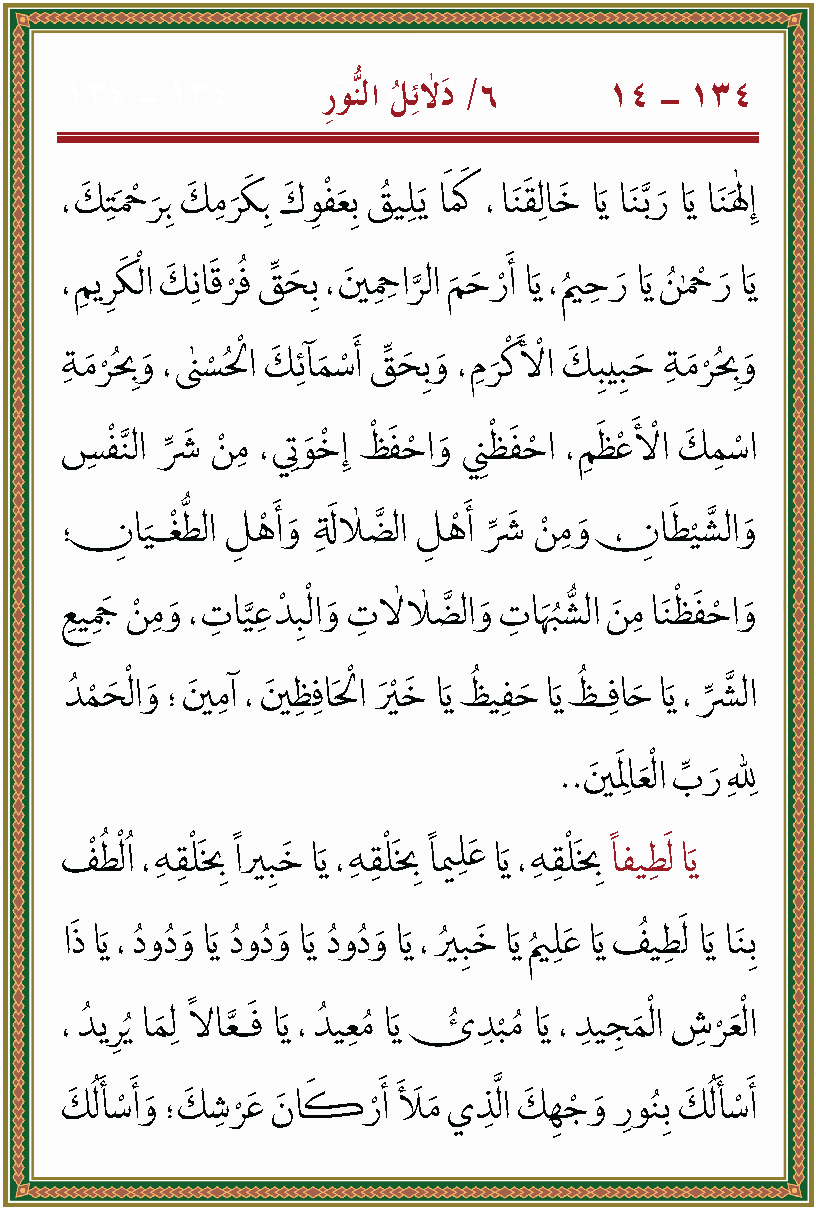 ١٣٤ – ١٤ ٦/ دَلَائِلُ النُّورِ ١٣٤ ١٣٤
إِلٰهَنَا يَا رَبَّنَا يَا خَالِقَنَا ، كَمَا يَلِيقُ بِعَفْوِكَ بِكَرَمِكَ بِرَحْمَتِكَ،
يَا رَحْمٰنُ يَا رَحِيمُ، يَا أَرْحَمَ الرَّاحِمِينَ، بِحَقِّ فُرْقَانِكَ الْكَرِيمِ،
وَبِحُرْمَةِ حَبِيبِكَ الْأَكْرَمِ، وَبِحَقِّ أَسْمَآئِكَ الْحُسْنٰى، وَبِحُرْمَةِ
اسْمِكَ الْأَعْظَمِ، احْفَظْنِي وَاحْفَظْ إِخْوَتِي، مِنْ شَرِّ النَّفْسِ
وَالشَّيْطَانِ، وَمِنْ شَرِّ أَهْلِ الضَّلَالَةِ وَأَهْلِ الطُّغْيَانِ؛
وَاحْفَظْنَا مِنَ الشُّبُهَاتِ وَالضَّلَالَاتِ وَالْبِدْعِيَّاتِ، وَمِنْ جَمِيعِ
الشَّرِّ ، يَا حَافِظُ يَا حَفِيظُ يَا خَيْرَ الْحَافِظِينَ ، آمِينَ ؛ وَالْحَمْدُ
لِلّٰهِ رَبِّ الْعَالَمِينَ..
يَا لَطِيفاً بِخَلْقِهِ، يَا عَلِيماً بِخَلْقِهِ، يَا خَبِيراً بِخَلْقِهِ، اُلْطُفْ
بِنَا يَا لَطِيفُ يَا عَلِيمُ يَا خَبِيرُ ، يَا وَدُودُ يَا وَدُودُ يَا وَدُودُ ، يَا ذَا
الْعَرْشِ الْمَجِيدِ ، يَا مُبْدِئُ يَا مُعِيدُ ، يَا فَعَّالاً لِمَا يُرِيدُ ،
أَسْأَلُكَ بِنُورِ وَجْهِكَ الَّذِي مَلَأَ أَرْكَانَ عَرْشِكَ؛ وَأَسْأَلُكَ